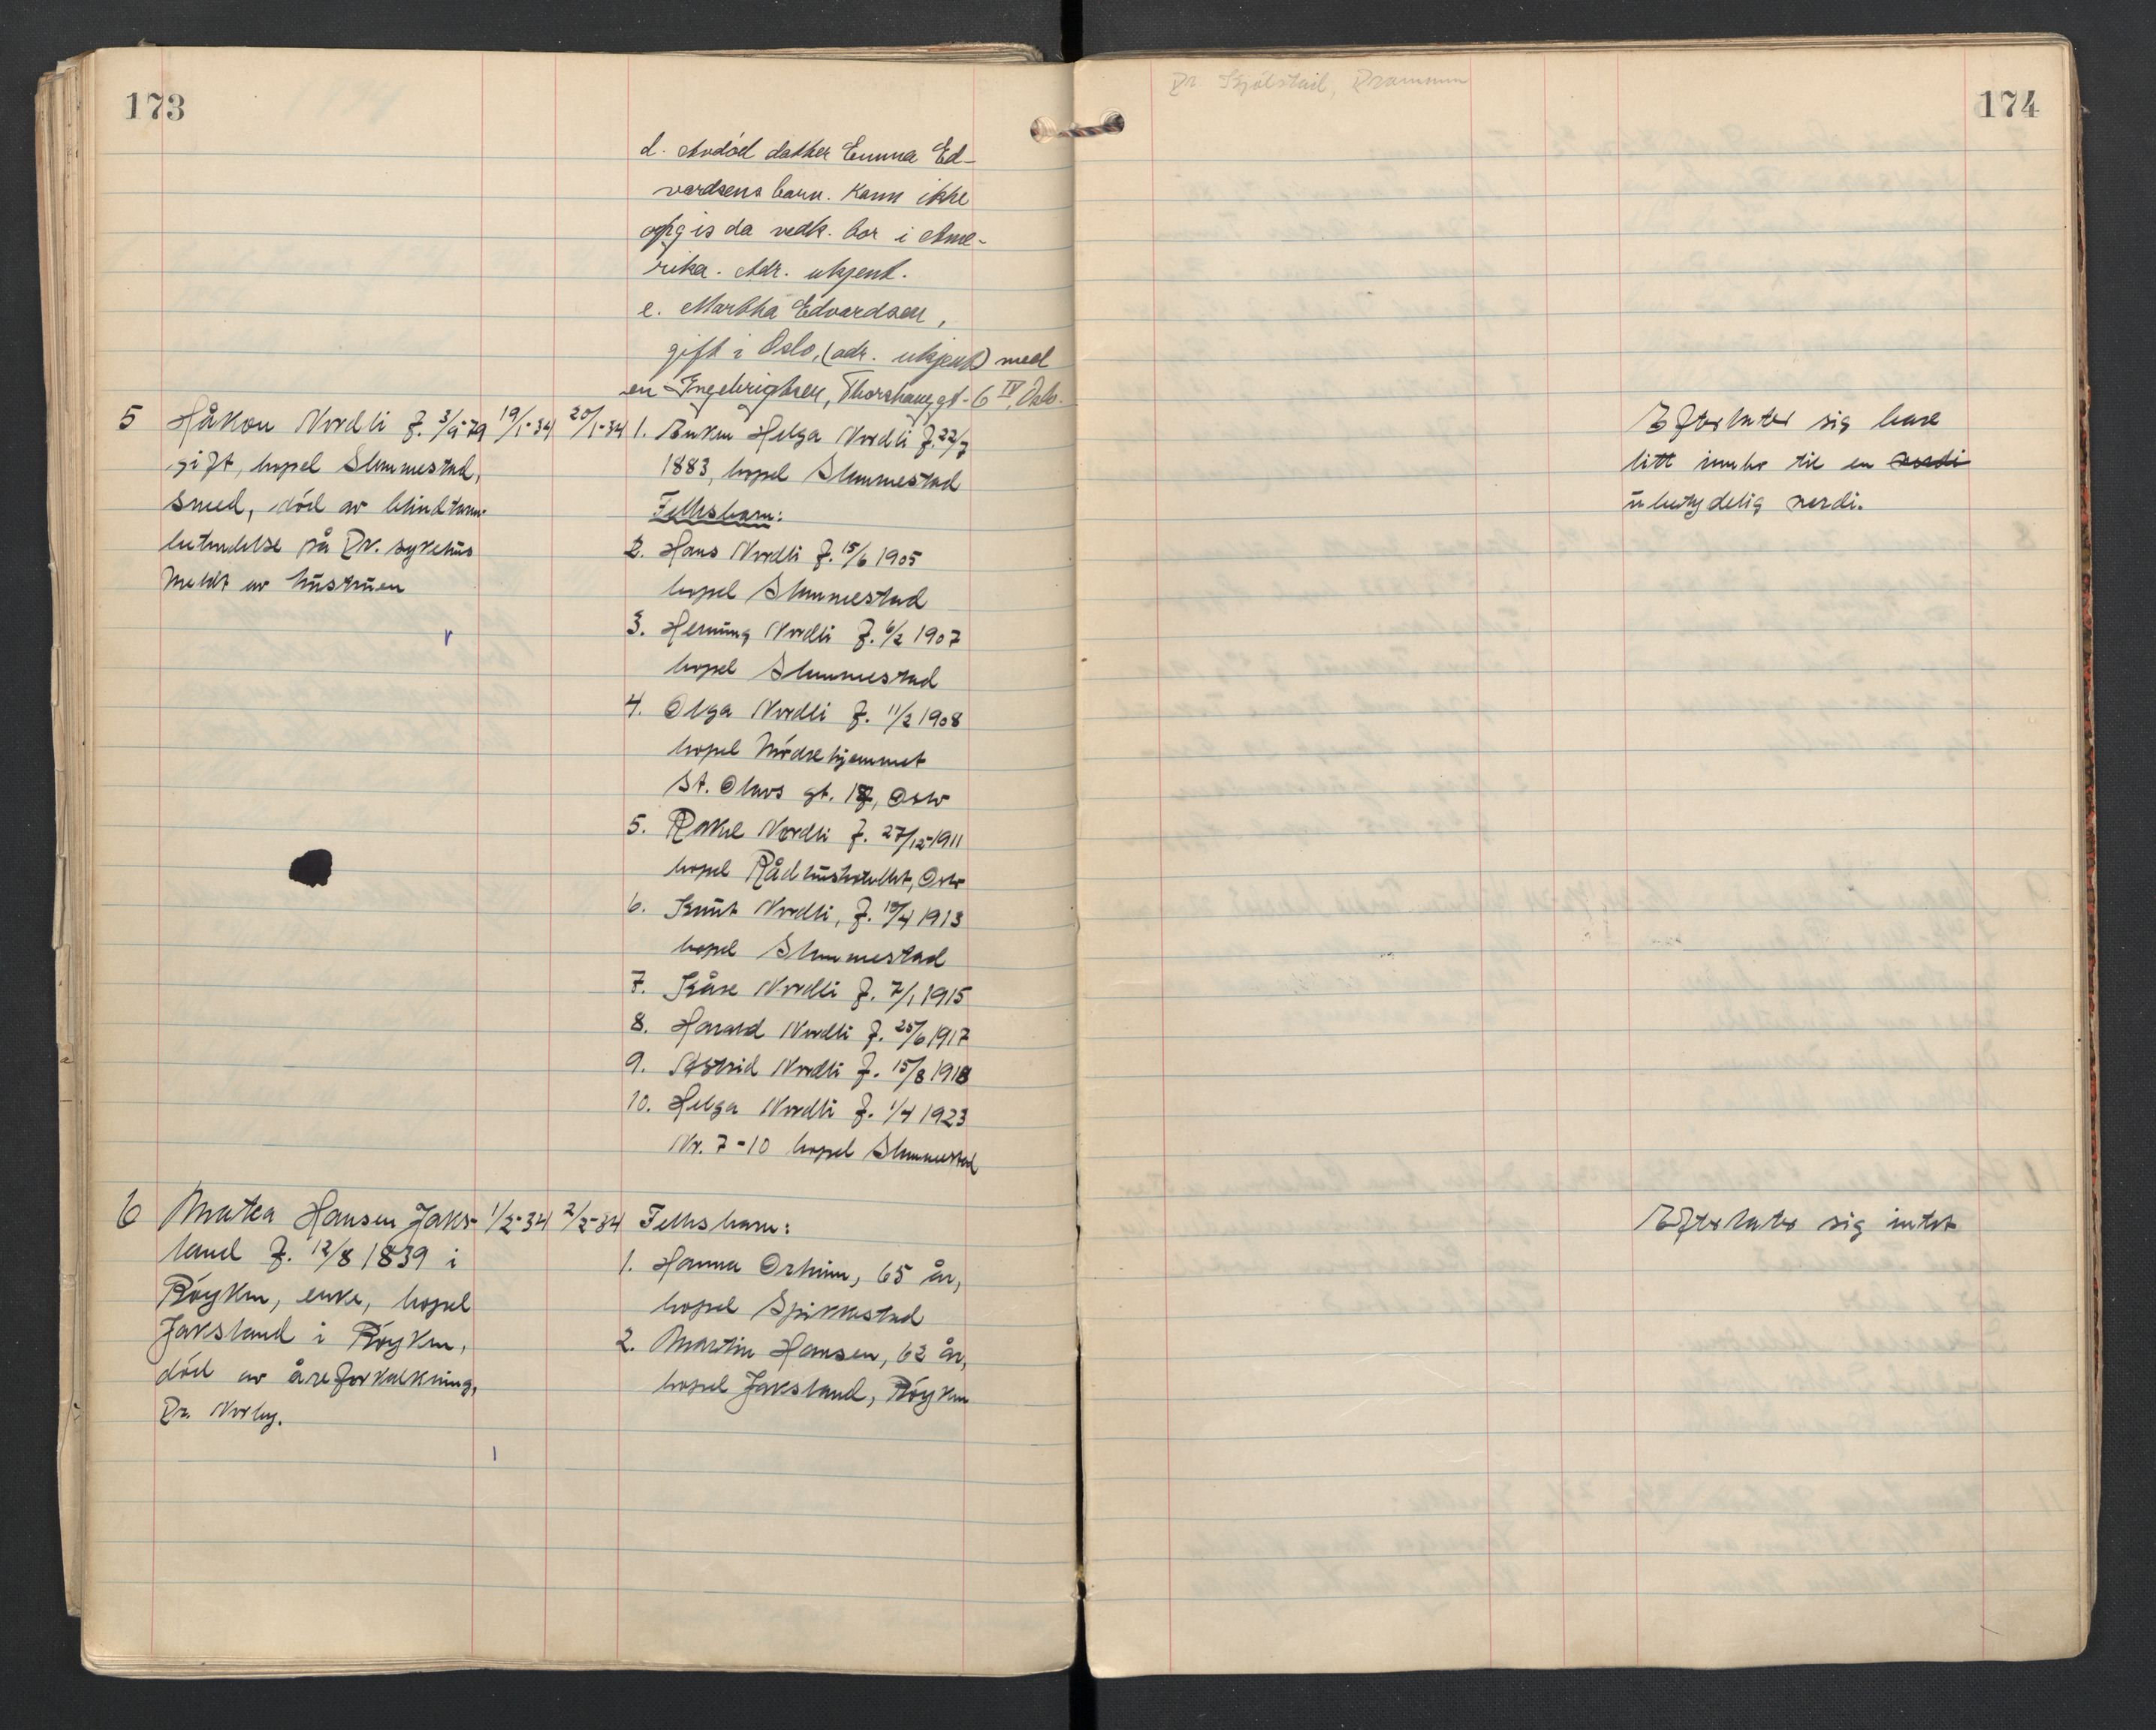 173
d. Avdöd datter Emma Ed-
vardsens barn. Kann ikke
opgis da vedk. bor i Ame-
rika. Adr. ukjent.
e. Martha Edvardsen,
gift i Oslo, (adr. ukjent) med
en Engebrigtsen, Thorshauggt. 6 IV, Oslo.
5 Håkon Nordli f. 3/9-79 19/1-34 20/1-34 1. Enken Helga Nordli f. 22/7
gift, bopel Slemmestad, 1883, bopel Slemmestad
smed, död av blindtarm- Fellsbarn:
betendelse på Dr. sykehus 2. Hans Nordli f. 15/6 1905
Meldt av hustruen bopel Slemmestad
3. Henning Nordli f. 6/2 1907
bopel Slemmestad
4. Olga Nordli f. 11/2 1908
bopel Mödrehjemmet
St. Olavs gt. 17, Oslo
5. Rakel Nordli f. 27/12-1911
bopel Rådhushotellet, Oslo
6. Knut Nordli, f. 19/4 1913
bopel Slemmestad
7. Kåre Nordli f. 7/1 1915
8. Harald Nordli f. 25/6 1917
9. Astrid Nordli f. 15/8 1918
10. Helga Nordli f. 1/4 1923
Nr. 7-10 bopel Slemmestad
6 Matea Hansen Jaks- 1/2-34 2/2-34 Fellsbarn:
land f. 12/8 1839 i 1. Hanna Orheim, 65 år,
Röyken, enke, bopel bopel Spikkestad
Jaksland i Röyken, 2. Martin Hansen, 62 år,
död av åreforkalkning, bopel Jaksland, Röyken
Dr. Norby.
Dr. Kjölstad, Drammen
174
Efterlater sig bare
litt innbo til en verdi
ubetydelig verdi.
Efterlater sig intet